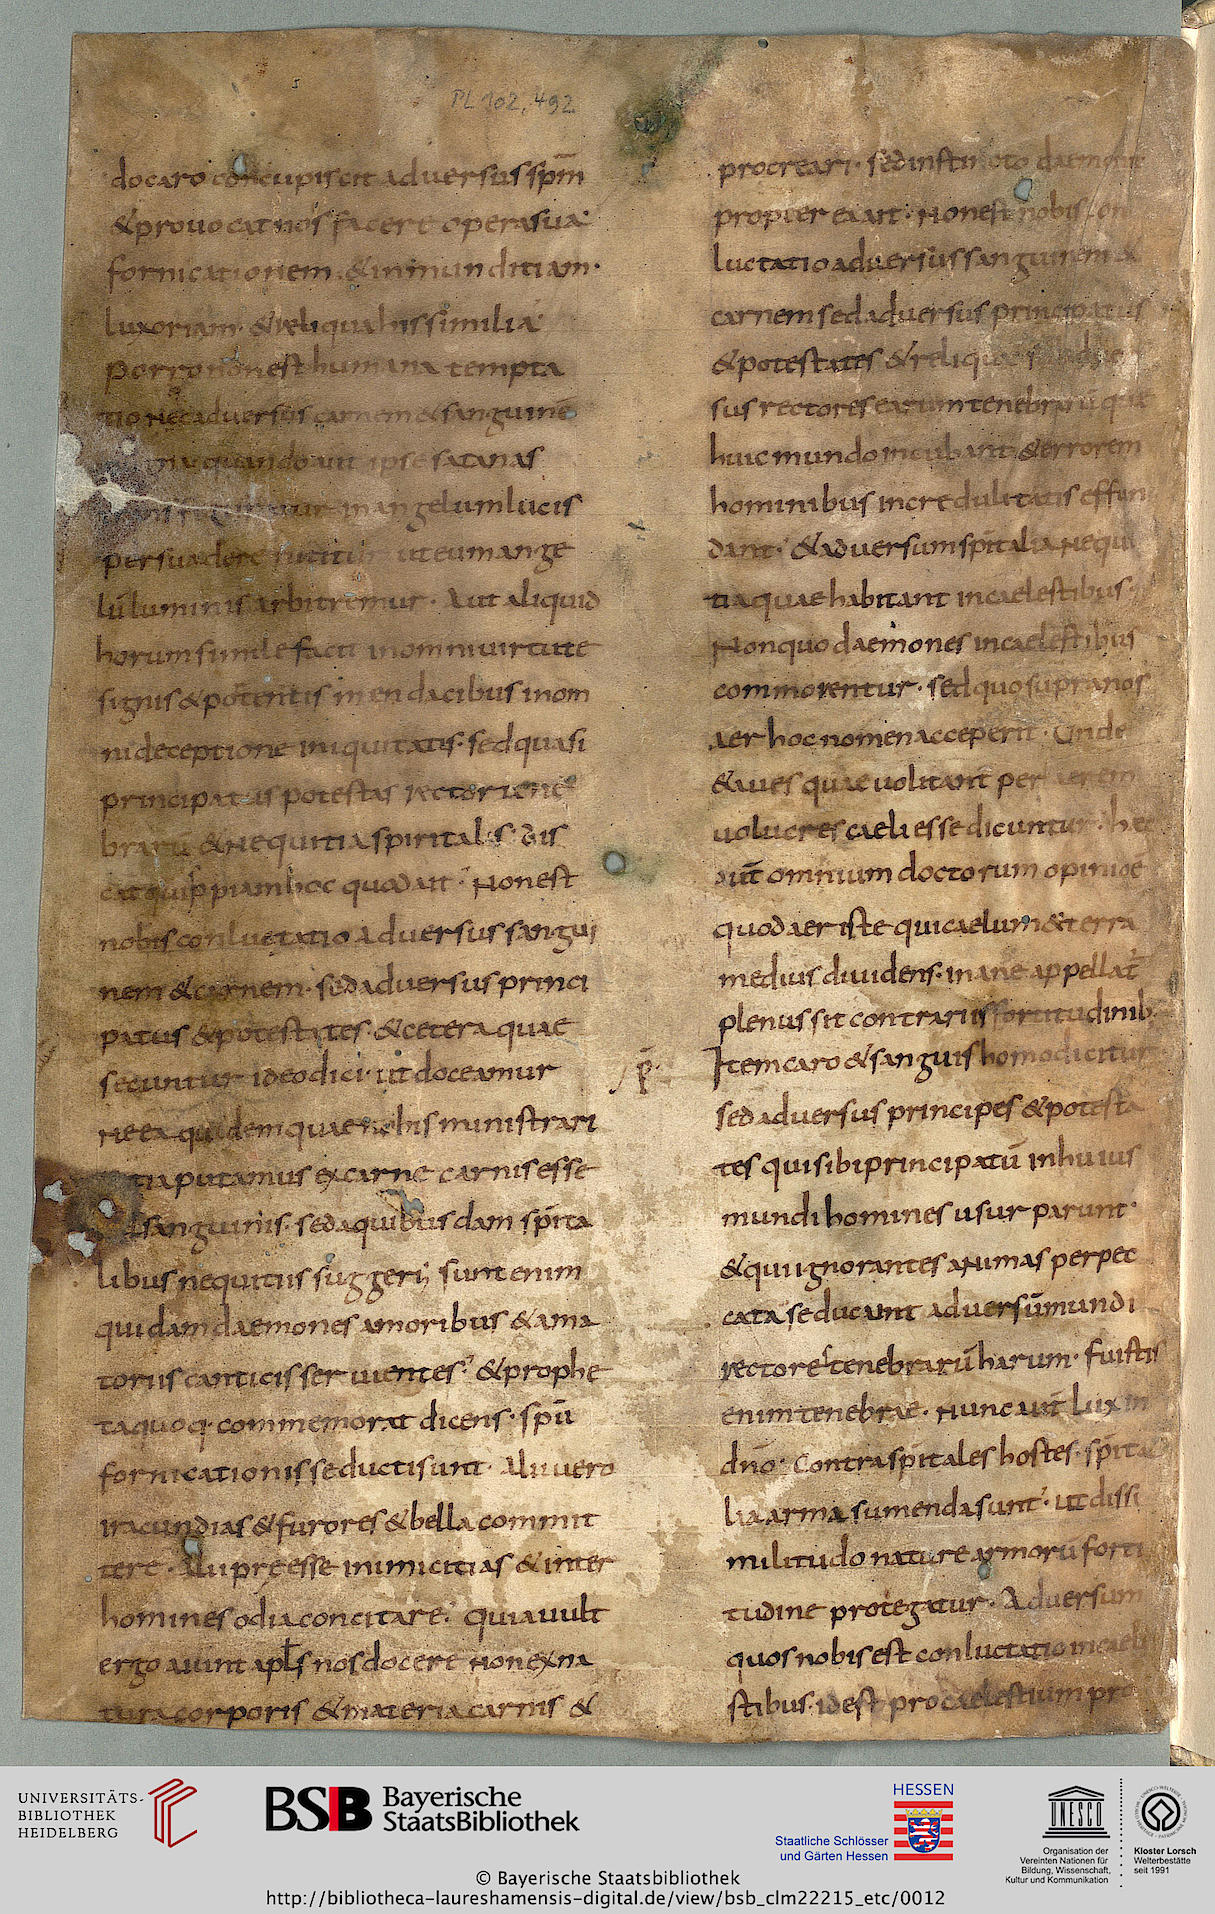 PL 102, 492
do caro concupiscit adversus spm̅
& provocat nos facere opera sua
fornicationem · & inmunditiam ·
luxoriam · & reliqua his similia
Porro non est humana tempta
tio nec adversus carnem & sanguinē
quando aut ipse satanas
in angelum lucis
persuadere ut eum ange
lū luminis arbitremur · Aut aliquid
horum simile facit in omni virtute
signis & potentis mendacibus in om
ni deceptione iniquitatis · sed quasi
principatus potestas rector tene
brarū & nequitia spiritalis · dis
cat quippiam hoc quod ait · Non est
nobis conluctatio adversus sangui
nem & carnem · sed adversus princi
patus & potestates · & cetera quae
secuntur ideo dici · ut doceamur
ne ea quidem quae nobis ministrari
putamus ex carne carnis esse
sanguinis · sed a quibusdam spi̅ta
libus nequitiis suggeri; sunt enim
quidam daemones amoribus & ama
toriis canticis servientes · & prophe
ta quoq· commemorat dicens · spū
fornicationis seducti sunt · Alii vero
iracundias & furores & bella commit
tere · Alii preesse inimicitias & inter
homines odia concitare · quia vult
ergo aiunt apls nos docere non ex na
tura corporis & materia carnis &
procreari · sed instinctu
propter ea ait · Non est nobis con
luctatio adversus sanguinem &
carnem sed adversus principatus
& potestates & reliqua
sus rectores earum tenebrarū quae
huic mundo incubant & errorem
hominibus incredulitatis effun
dant · & adversum spi̅talia nequi
tia quae habitant in caelestibus ·
Non quo daemones in caelestibus
commorentur · sed quo supra nos
aer hoc nomen acceperit · Unde
& aves quae volitant per aerem
volucres caeli esse dicuntur · haec
aut̅ omnium doctorum opinio ē
quod aer iste qui caelum & terra
medius dividens · inane appellat̅
plenus sit contrariis fortitudinib·
p̅·
Item caro & sanguis homo dicitur
sed adversus principes & potesta
tes qui sibi principatū in huius
mundi homines usurparunt ·
& qui ignorantes animas per pec
cata seducunt adversū mundi
rectores tenebrarū harum · fuistis
enim tenebrae · Nunc aut̅ lux in
dn̅o · Contra spi̅tales hostes · spi̅ta
lia arma sumenda sunt · ut dissi
militudo nature armorū forti
tudine protegatur · Adversum
quos nobis est conluctatio in caele
stibus · id est pro caelestium pro
UNIVERSITÄTS-
BIBLIOTHEK
HEIDELBERG
BSB Bayerische
StaatsBibliothek
HESSEN
Staatliche Schlösser
und Gärten Hessen
UNESCO
Organisation der
Vereinten Nationen für
Bildung, Wissenschaft,
Kultur und Kommunikation
Kloster Lorsch
Welterbestätte
seit 1991
© Bayerische Staatsbibliothek
http://bibliotheca-laureshamensis-digital.de/view/bsb_clm22215_etc/0012